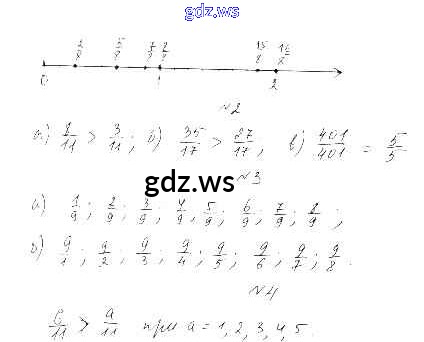 gdz.ws
2/8 5/8 7/8 8/8 15/8 16/8
0 1 2
№2
а) 8/11 > 3/11; б) 35/17 > 27/17, в) 401/401 = 5/5
№3
gdz.ws
а) 1/9; 2/9; 3/9; 4/9; 5/9; 6/9; 7/9; 8/9;
б) 9/1; 9/2; 9/3; 9/4; 9/5; 9/6; 9/7; 9/8.
№4
6/11 > a/11 при a = 1, 2, 3, 4, 5.